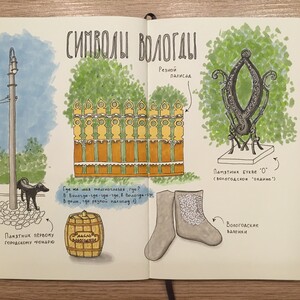 СИМВОЛЫ ВОЛОГДЫ
Резной
палисад
Памятник букве "О"
(вологодское "оканье")
Где же моя темноглазая, где?
В Вологде-где-где-где, в Вологде-где,
В доме, где резной палисад
Памятник первому
городскому фонарю
Вологодские
валенки